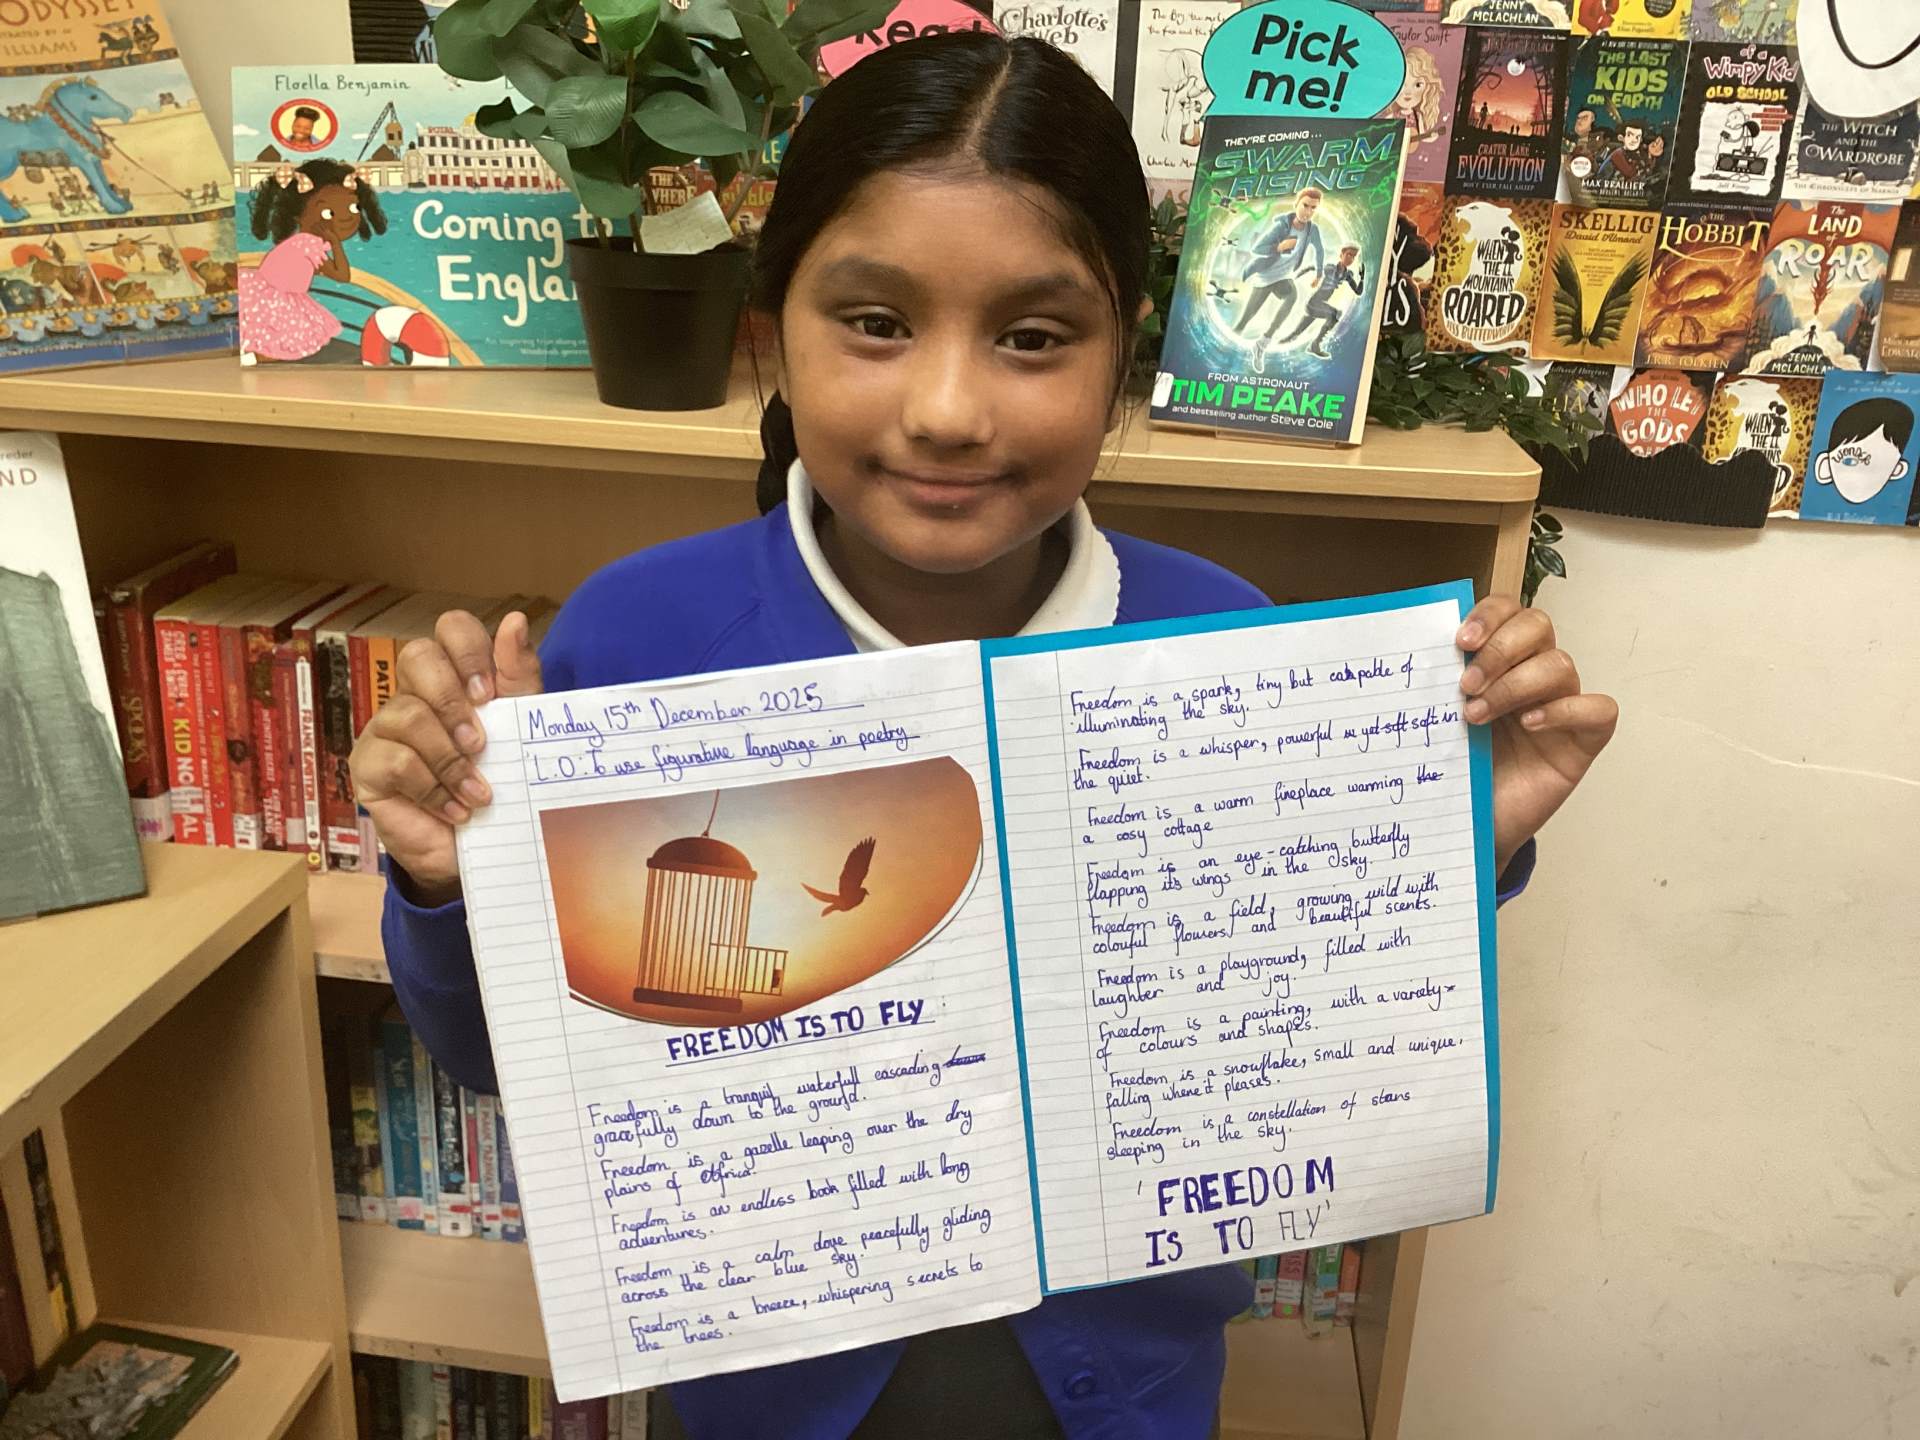 ODYSSEY
WILLIAMS
Floella Benjamin
Coming to
England
Charlotte's
Web
Pick
me!
THEY'RE COMING...
SWARM
RISING
FROM ASTRONAUT
TIM PEAKE
and bestselling author Steve Cole
JENNY
MCLACHLAN
Taylor Swift
CRATER LAKE
EVOLUTION
THE LAST
KIDS
ON EARTH
MAX BRALLIER
of a
Wimpy Kid
OLD SCHOOL
Jeff Kinney
THE WITCH
AND THE
WARDROBE
WHEN
THE
MOUNTAINS
ROARED
SKELLIG
David Almond
THE
HOBBIT
J.R.R. TOLKIEN
The
LAND
of
ROAR
JENNY
MCLACHLAN
WHO LET
THE
GODS
WHEN
THE
wonder
Monday 15th December 2025
L.O: To use figurative language in poetry
FREEDOM IS TO FLY
Freedom is a tranquil waterfall cascading
gracefully down to the ground.
Freedom is a gazelle leaping over the dry
plains of Africa.
Freedom is an endless book filled with long
adventures.
Freedom is a calm dove peacefully gliding
across the clear blue sky.
Freedom is a breeze, whispering secrets to
the trees.
Freedom is a spark, tiny but capable of
illuminating the sky.
Freedom is a whisper, powerful yet soft soft in
the quiet.
Freedom is a warm fireplace warming the
a cosy cottage
Freedom is an eye-catching butterfly
flapping its wings in the sky.
Freedom is a field, growing wild with
colourful flowers and beautiful scents.
Freedom is a playground, filled with
laughter and joy.
Freedom is a painting, with a variety
of colours and shapes.
Freedom is a snowflake, small and unique,
falling where it pleases.
Freedom is a constellation of stars
sleeping in the sky.
'FREEDOM
IS TO FLY'